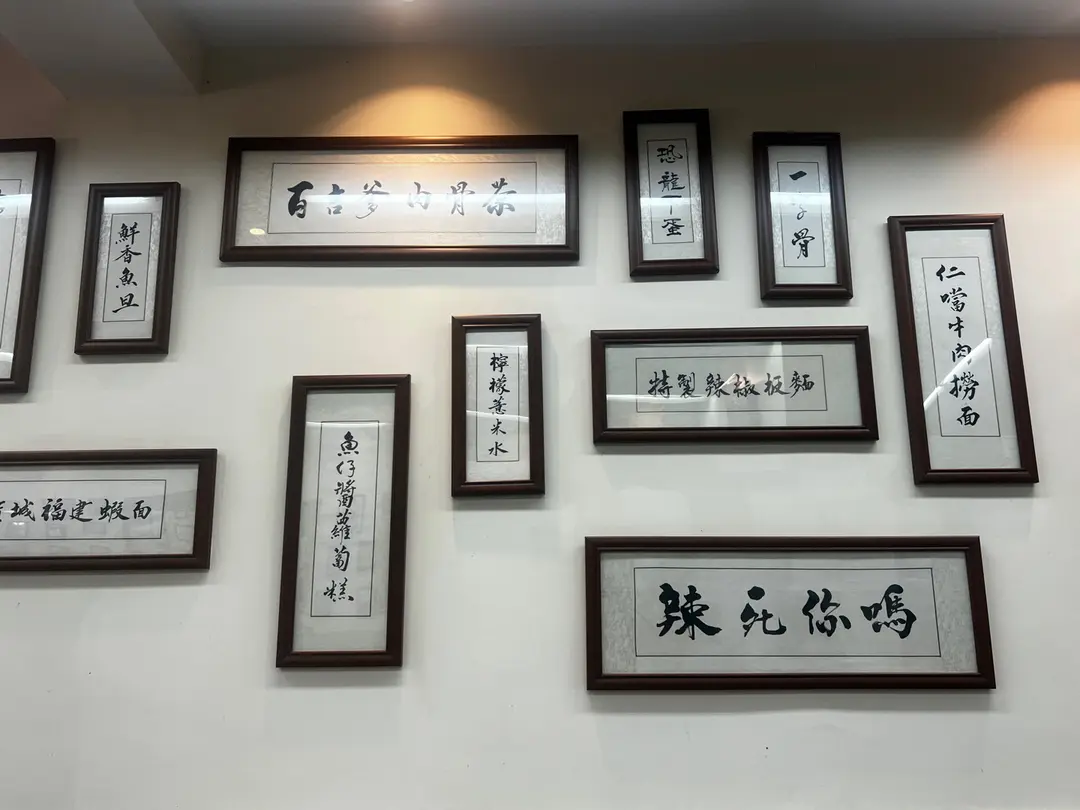 鮮香魚旦
百古爹肉骨茶
恐龍下蛋
一字骨
仁噹牛肉撈面
檸檬薏米水
特製辣椒板麵
魚仔醬蘿蔔糕
城福建蝦面
辣死你嗎